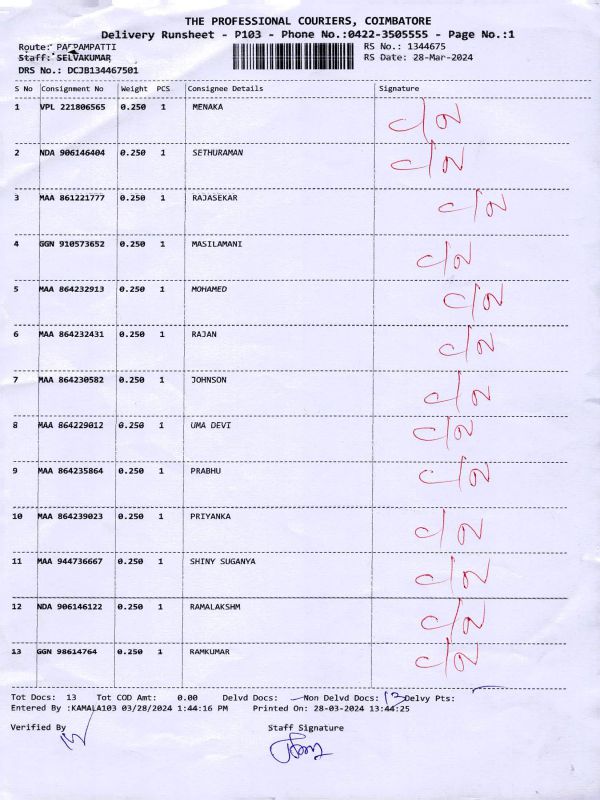 THE PROFESSIONAL COURIERS, COIMBATORE
Delivery Runsheet - P103 - Phone No.:0422-3505555 - Page No.:1
Route: PAPPAMPATTI RS No.: 1344675
Staff: SELVAKUMAR RS Date: 28-Mar-2024
DRS No.: DCJB134467501
S No Consignment No Weight PCS Consignee Details Signature
1 VPL 221806565 0.250 1 MENAKA C/N
2 NDA 906146404 0.250 1 SETHURAMAN C/N
3 MAA 861221777 0.250 1 RAJASEKAR C/N
4 GGN 910573652 0.250 1 MASILAMANI C/N
5 MAA 864232913 0.250 1 MOHAMED C/N
6 MAA 864232431 0.250 1 RAJAN C/N
7 MAA 864230582 0.250 1 JOHNSON C/N
8 MAA 864229012 0.250 1 UMA DEVI C/N
9 MAA 864235864 0.250 1 PRABHU C/N
10 MAA 864239023 0.250 1 PRIYANKA C/N
11 MAA 944736667 0.250 1 SHINY SUGANYA C/N
12 NDA 906146122 0.250 1 RAMALAKSHM C/N
13 GGN 98614764 0.250 1 RAMKUMAR C/N
Tot Docs: 13 Tot COD Amt: 0.00 Delvd Docs: Non Delvd Docs: 13 Delvy Pts:
Entered By :KAMALA103 03/28/2024 1:44:16 PM Printed On: 28-03-2024 13:44:25
Verified By Staff Signature